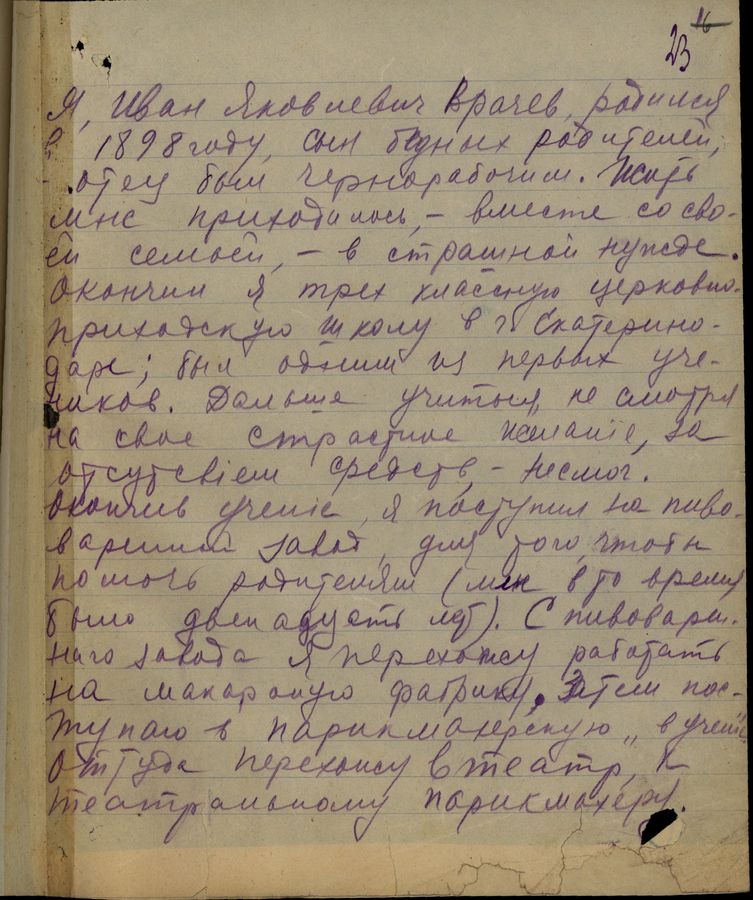 16
23
Я, Иван Яковлевич Врачев, родился
в 1898 году, сын бедных родителей;
- отец был чернорабочим. Жить
мне приходилось, - вместе со сво-
ей семьей, - в страшной нужде.
Окончил я трех классную церковно-
приходскую школу в г. Екатерино-
даре; был одним из первых уче-
ников. Дальше учиться, не смотря
на свое страстное желаніе, за
отсутсвіем средств, - несмог.
Окончив ученіе, я поступил на пиво-
варенный завод, для того, чтобы
помочь родителям (мне в то время
было двенадцать лет). С пивоварен.
наго завода я перехожу работать
на макароную фабрику. Затем пос-
тупаю в парикмахерскую „в ученіе"
Оттуда перехожу в театр, к
театральному парикмахеру.